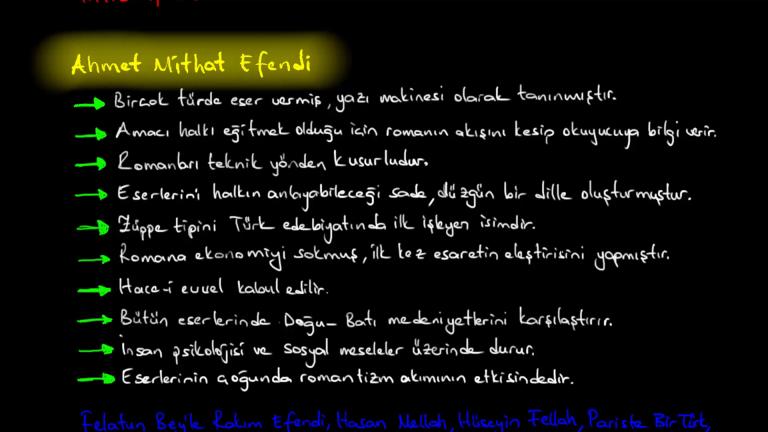 Ahmet Mithat Efendi
Birçok türde eser vermiş, yazı makinesi olarak tanınmıştır.
Amacı halkı eğitmek olduğu için romanın akışını kesip okuyucuya bilgi verir.
Romanları teknik yönden kusurludur.
Eserlerini halkın anlayabileceği sade, düzgün bir dille oluşturmuştur.
Züppe tipini Türk edebiyatında ilk işleyen isimdir.
Romana ekonomiyi sokmuş, ilk kez esaretin eleştirisini yapmıştır.
Hace-i evvel kabul edilir.
Bütün eserlerinde Doğu-Batı medeniyetlerini karşılaştırır.
İnsan psikolojisi ve sosyal meseleler üzerinde durur.
Eserlerinin çoğunda romantizm akımının etkisindedir.
Felatun Bey'le Rakım Efendi, Hasan Mellah, Hüseyin Fellah, Pariste Bir Türk,